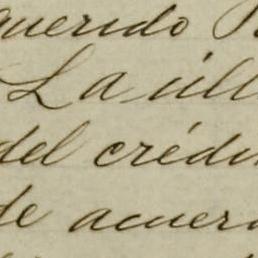 querido
La últ
del crédi
de acuer